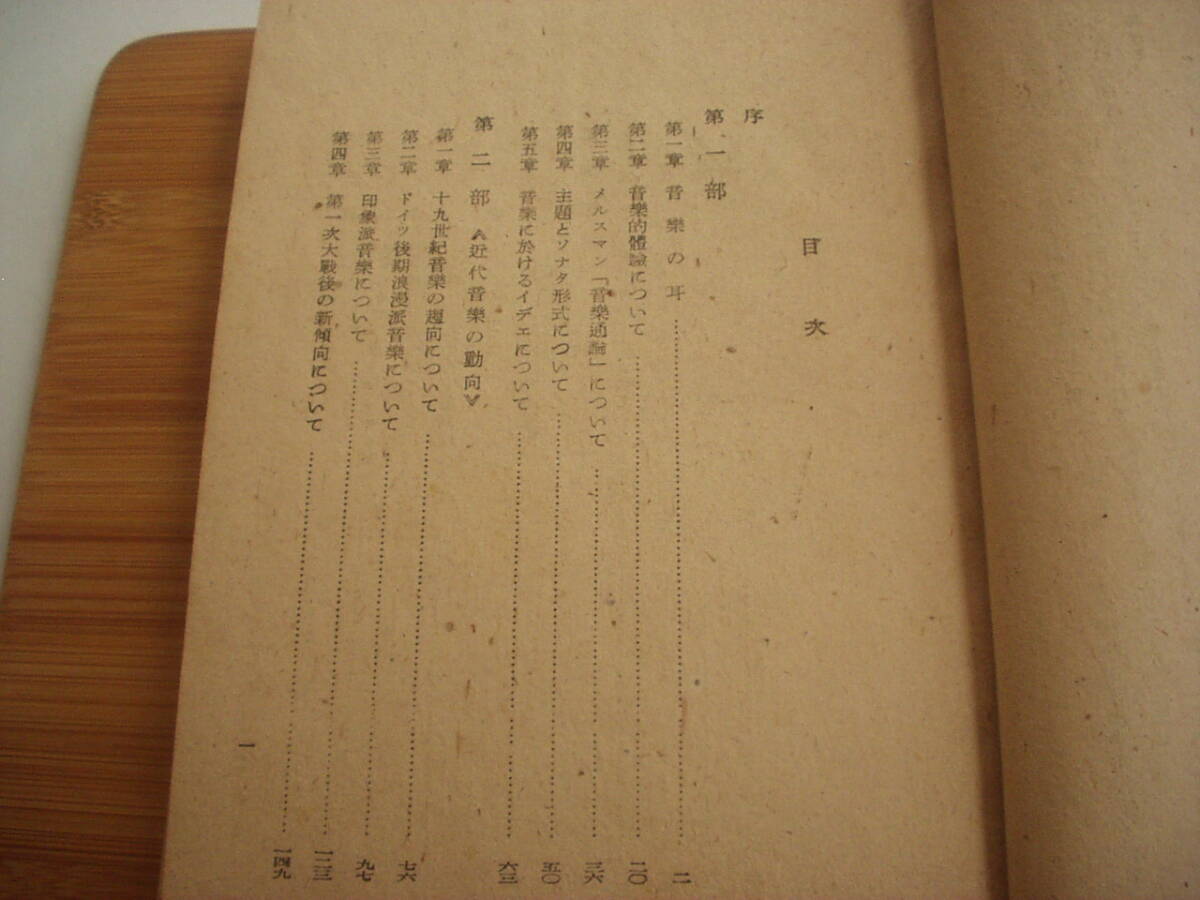 目次
序
第一部
第一章 音樂の耳 二
第二章 音樂的體論について 二〇
第三章 メルスマン「音樂通論」について 三六
第四章 主題とソナタ形式について 五〇
第五章 音樂に於けるイデエについて 六三
第二部 《近代音樂の動向》
第一章 十九世紀音樂の趨向について 七六
第二章 ドイツ後期浪漫派音樂について 九七
第三章 印象派音樂について 一二三
第四章 第一次大戰後の新傾向について 一四九
一